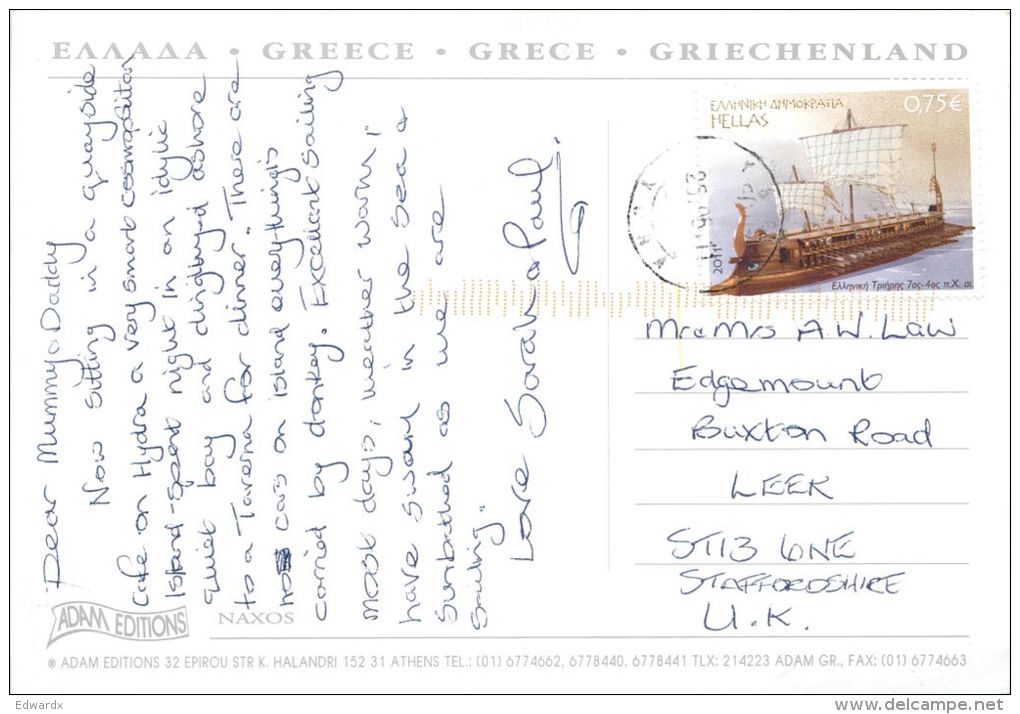 ΕΛΛΑΔΑ • GREECE • GRECE • GRIECHENLAND
Dear Mummy & Daddy
Now sitting in a quayside
Cafe on Hydra a very smart cosmopolitan
Island - Spent night in an idylic
quiet bay and dinghy'd ashore
to a Taverna for dinner. There are
no cars on island everything is
carried by donkey. Excellent sailing
most days, weather warm,
have swam in the sea &
Sunbathed as we are
Sailing.
Love Sarah & Paul.
ΕΛΛΗΝΙΚΗ ΔΗΜΟΚΡΑΤΙΑ 0,75€
HELLAS
2011
Ελληνική Τριήρης 7ος-4ος π.Χ. αι.
Mr & Mrs A.W. Law
Edgemount
Buxton Road
LEEK
ST13 6NE
STAFFORDSHIRE
U.K.
ADAM EDITIONS
NAXOS
® ADAM EDITIONS 32 EPIROU STR K. HALANDRI 152 31 ATHENS TEL.: (01) 6774662, 6778440, 6778441 TLX: 214223 ADAM GR., FAX: (01) 6774663
Edwardx
www.delcampe.net